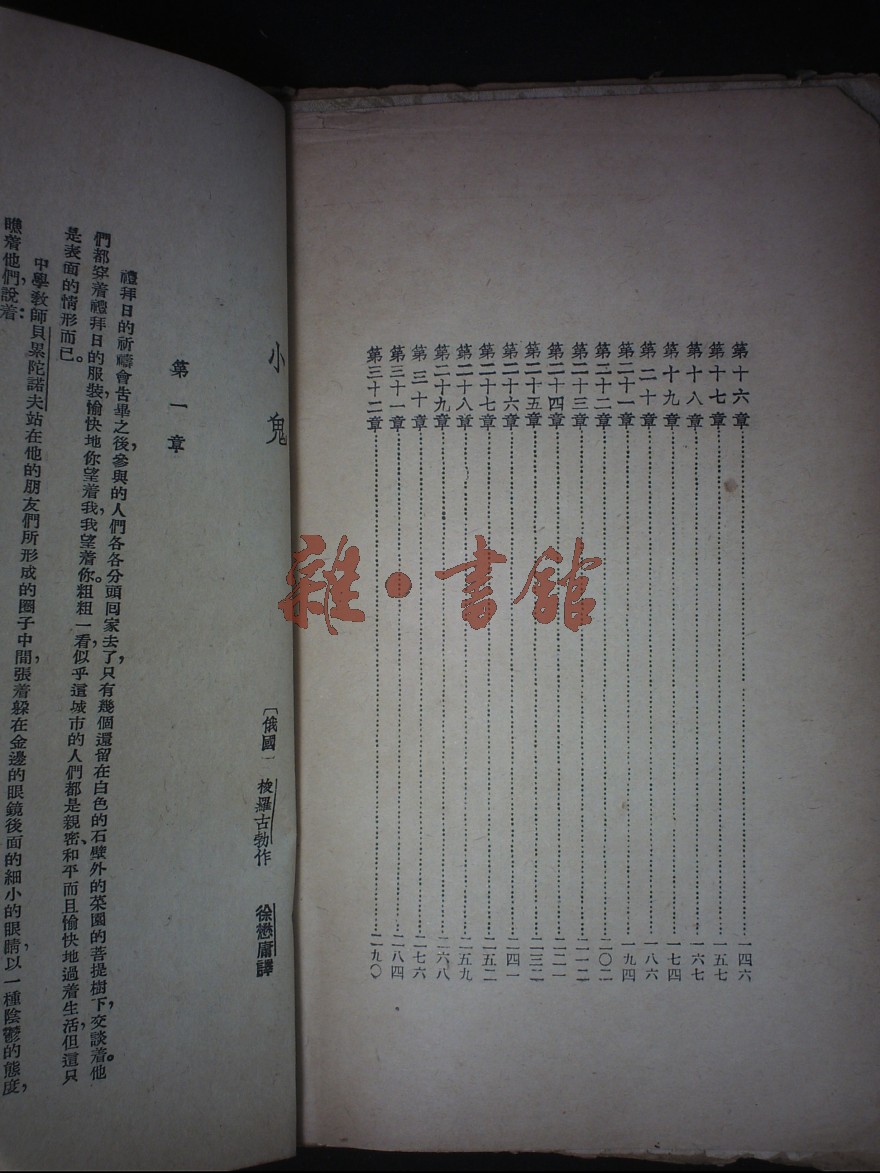 第十六章……一四六
第十七章……一五七
第十八章……一六七
第十九章……一七四
第二十章……一八六
第二十一章……一九四
第二十二章……二〇二
第二十三章……二一二
第二十四章……二二一
第二十五章……二三二
第二十六章……二四一
第二十七章……二五二
第二十八章……二五九
第二十九章……二六八
第三十章……二七六
第三十一章……二八四
第三十二章……二九〇
雜·書館
小鬼
〔俄國〕梭羅古勃作 徐懋庸譯
第一章
禮拜日的祈禱會告畢之後，參與的人們各各分頭囘家去了，只有幾個還留在白色的石壁外的菜園的菩提樹下，交談着。他
們都穿着禮拜日的服裝，愉快地你望着我，我望着你。粗粗一看，似乎這城市的人們都是親密、和平而且愉快地過着生活，但這只
是表面的情形而已。
中學教師貝累陀諾夫站在他的朋友們所形成的圈子中間，張着躲在金邊的眼鏡後面的細小的眼睛，以一種陰鬱的態度，
瞧着他們，說着：